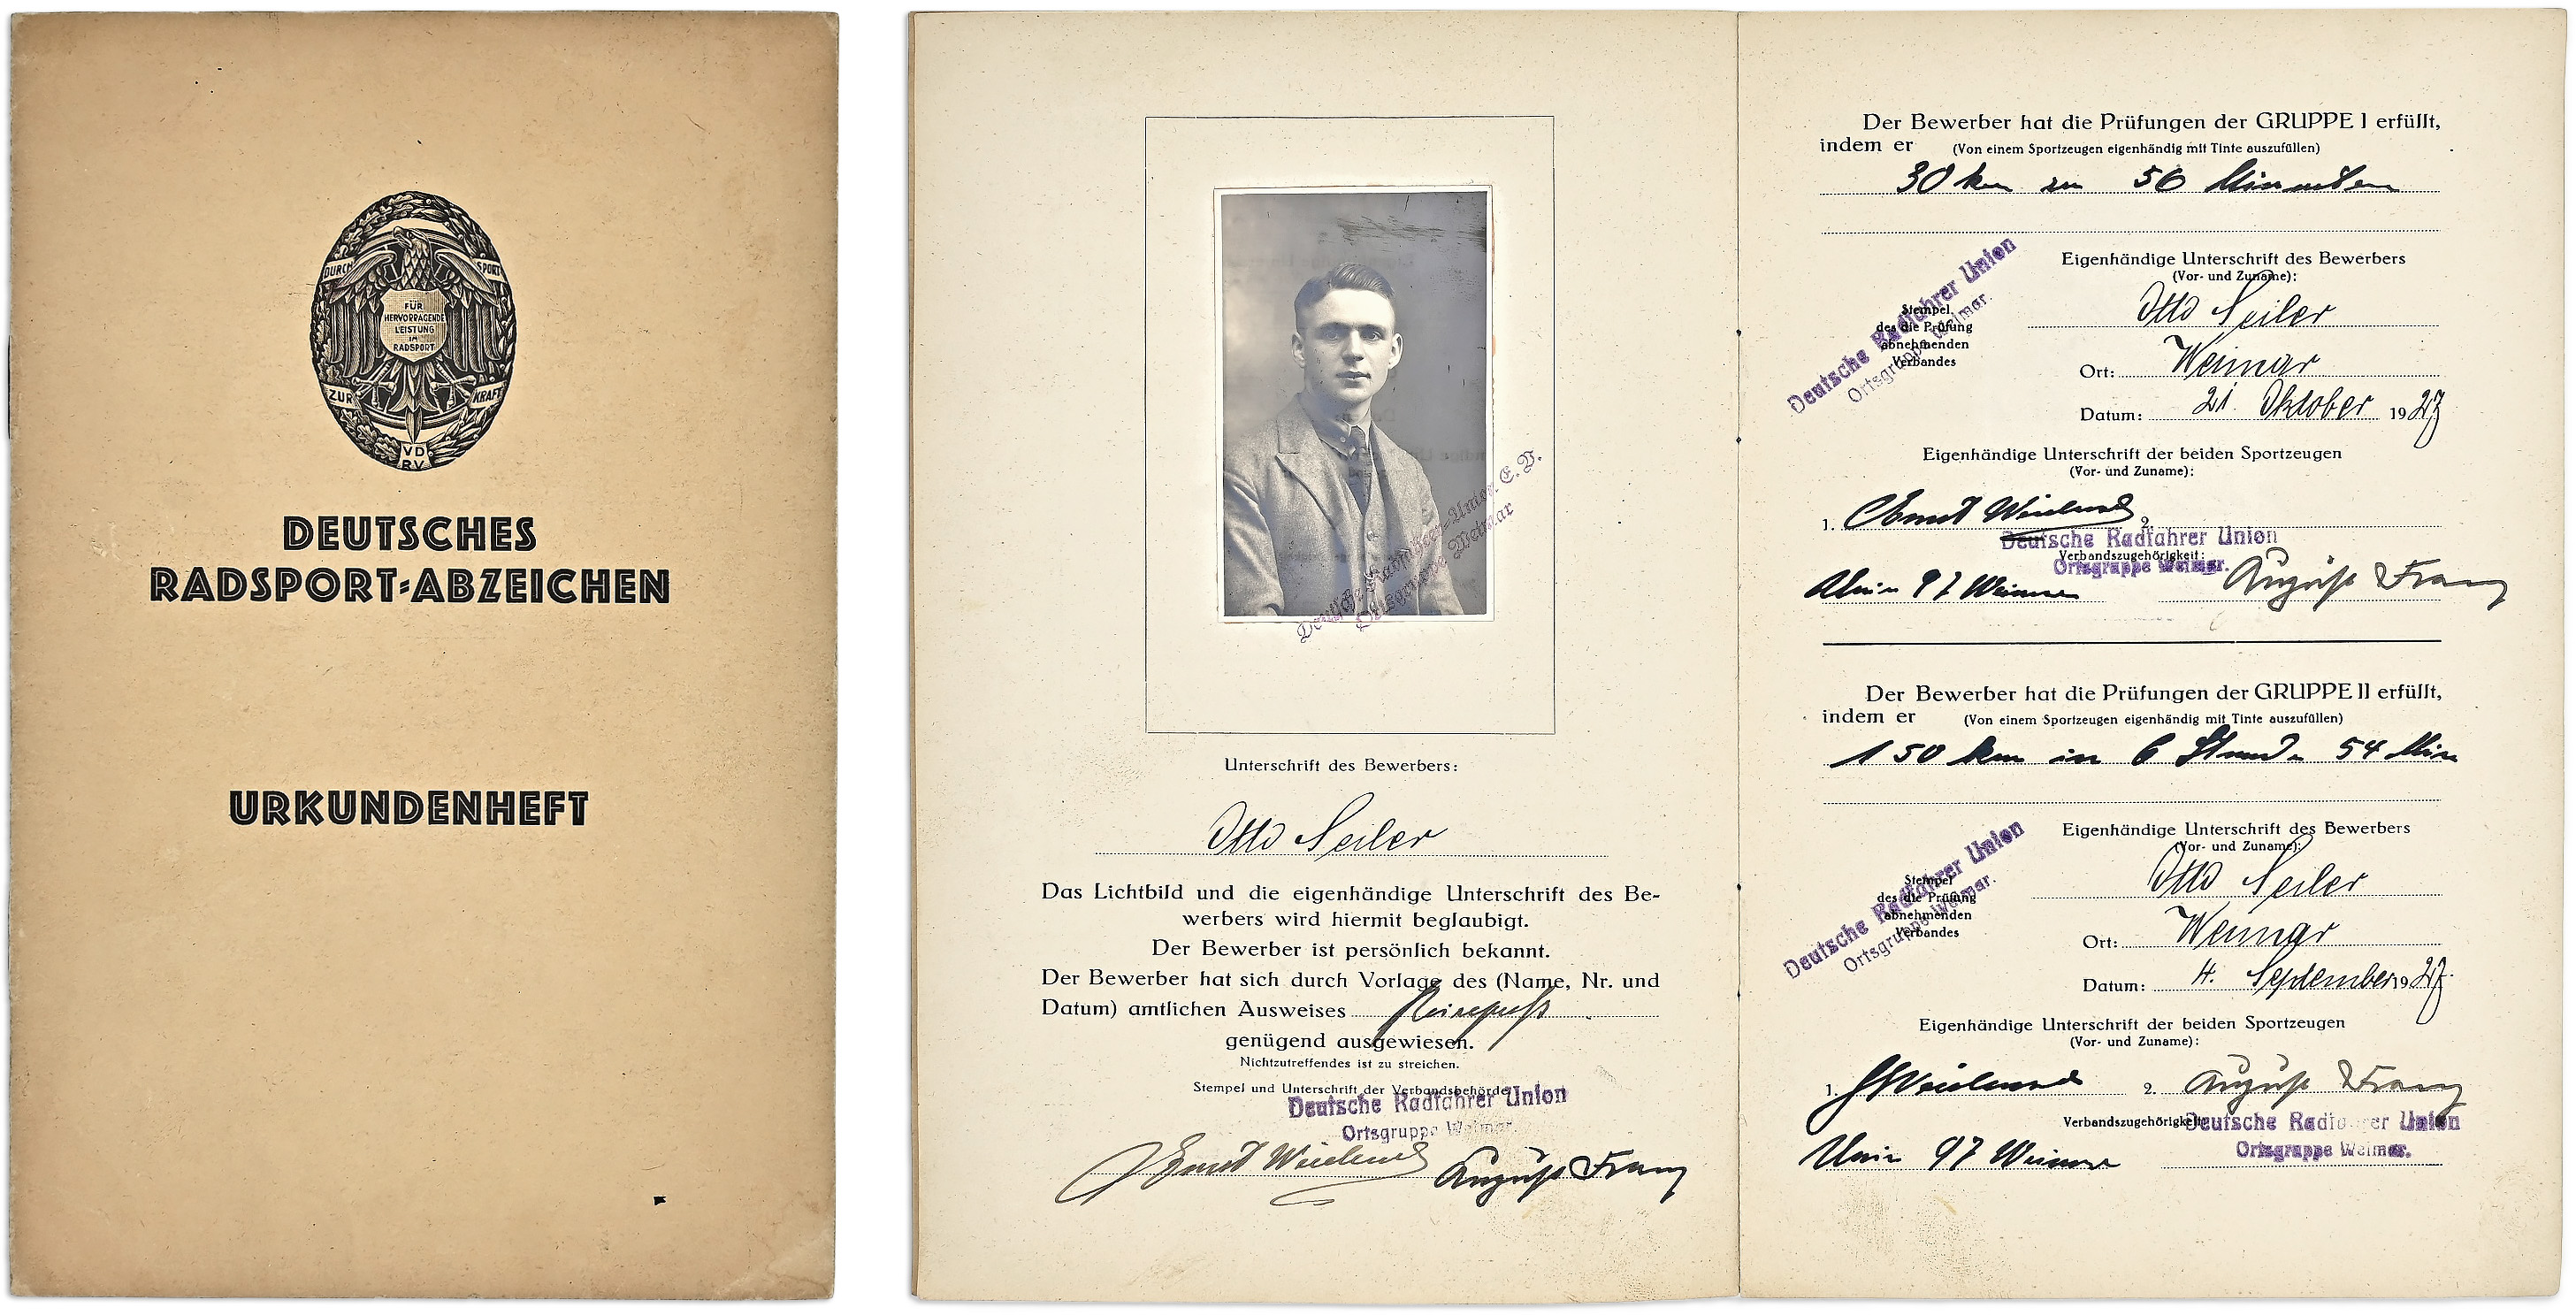 DURCH SPORT
FÜR
HERVORRAGENDE
LEISTUNG
IM
RADSPORT
ZUR KRAFT
VD
RV
DEUTSCHES
RADSPORT-ABZEICHEN
URKUNDENHEFT
Deutsche Radfahrer-Union E.V.
Ortsgruppe Weimar
Unterschrift des Bewerbers:
Otto Seiler
Das Lichtbild und die eigenhändige Unterschrift des Be-
werbers wird hiermit beglaubigt.
Der Bewerber ist persönlich bekannt.
Der Bewerber hat sich durch Vorlage des (Name, Nr. und
Datum) amtlichen Ausweises Reisepaß
genügend ausgewiesen.
Nichtzutreffendes ist zu streichen.
Stempel und Unterschrift der Verbandsbehörde
Deutsche Radfahrer Union
Ortsgruppe Weimar.
August Franz
Der Bewerber hat die Prüfungen der GRUPPE I erfüllt,
indem er (Von einem Sportzeugen eigenhändig mit Tinte auszufüllen)
30 km in 56 Minuten
Eigenhändige Unterschrift des Bewerbers
(Vor- und Zuname):
Otto Seiler
Stempel
des die Prüfung
abnehmenden
Verbandes
Deutsche Radfahrer Union
Ortsgruppe Weimar.
Ort: Weimar
Datum: 21. Oktober 1927
Eigenhändige Unterschrift der beiden Sportzeugen
(Vor- und Zuname):
1. 2.
Deutsche Radfahrer Union
Verbandszugehörigkeit:
Ortsgruppe Weimar.
Union 97 Weimar August Franz
Der Bewerber hat die Prüfungen der GRUPPE II erfüllt,
indem er (Von einem Sportzeugen eigenhändig mit Tinte auszufüllen)
150 km in 6 Stunden 54 Min
Eigenhändige Unterschrift des Bewerbers
(Vor- und Zuname):
Otto Seiler
Stempel
des die Prüfung
abnehmenden
Verbandes
Deutsche Radfahrer Union
Ortsgruppe Weimar.
Ort: Weimar
Datum: 4. September 1927.
Eigenhändige Unterschrift der beiden Sportzeugen
(Vor- und Zuname):
1. 2. August Franz
Verbandszugehörigkeit:
Deutsche Radfahrer Union
Ortsgruppe Weimar.
Union 97 Weimar